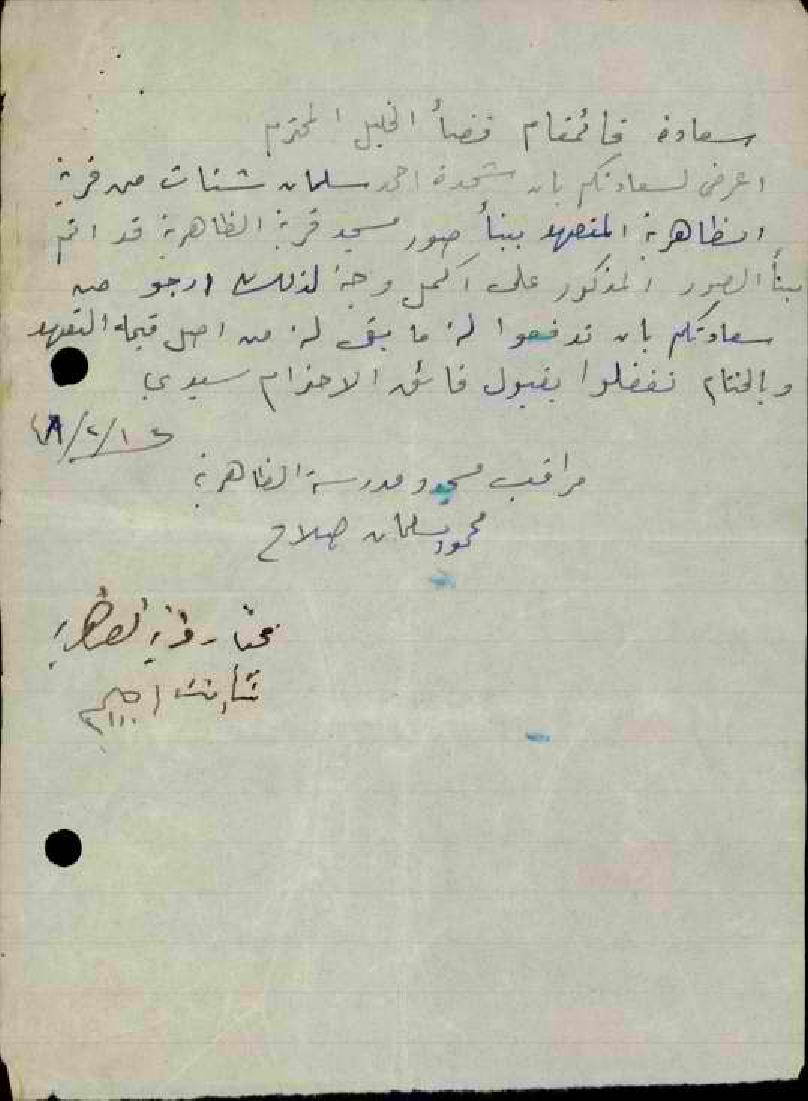 سعادة قائمقام قضأ الخليل المحترم
اعرض لسعادتكم بان شحدة احمد سلمان شتات من قرية
الظاهرية المتعهد ببنأ صور مسجد قرية الظاهرية قد اتم
بنأ الصور المذكور على اكمل وجه لذلك ارجو من
سعادتكم بان تدفعوا له ما بقى له من اصل قيمة التعهد
وبالختام تفضلوا بقبول فائق الاحترام سيدي
مراقب مسجد ومدرسة الظاهرية
محمود سلمان صلاح
مختار قرية الظاهرية